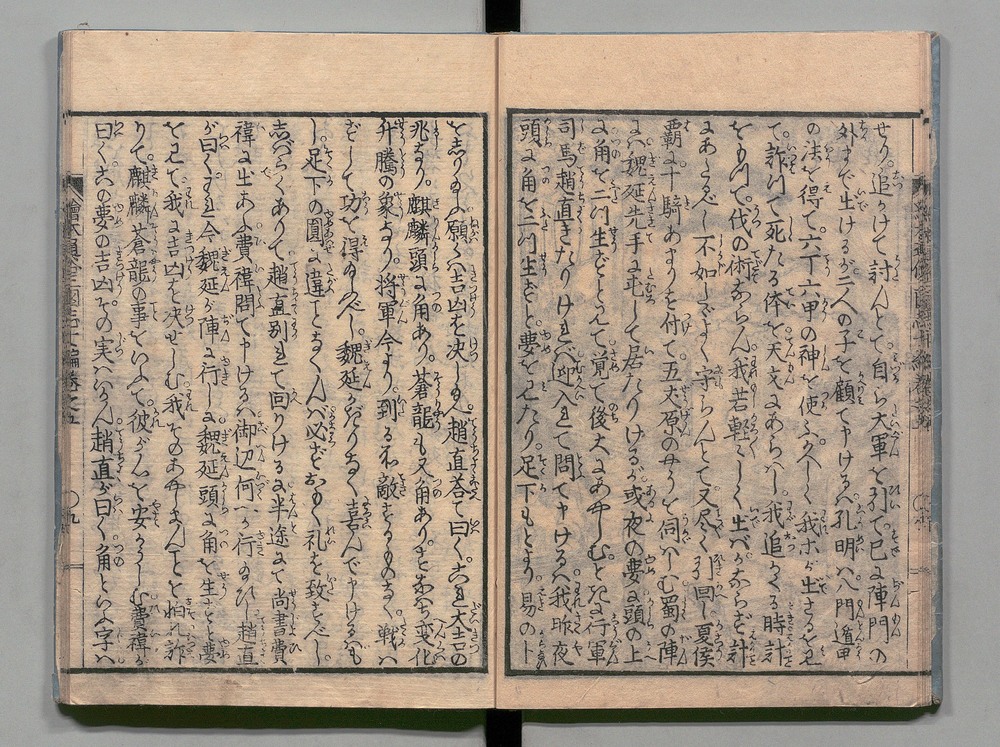 せり。追かけて討んとて。自ら大軍を引て。已に陣門の
外まで出けるが。二人の子を顧て申けるハ。孔明ハ八門遁甲
の法を得て。六丁六甲の神を使ふ。久しく我ホが生ざるを見
て。詐りて死たる体を天文にあらハし。我追かくる時。計
をもつて。代の術ならん。我若軽〻しく生バ。かならず計
にあたるべし。不如しで。よく守らんとて。又尽く引回し。夏侯
覇に千騎あまりを付て。五丈原のやうを伺ハしむ。蜀の陣
にハ。魏延先手に屯して居たりけるが。或夜の夢に。頭の上
に角を二ツ生ずとミて。覚て後大にあやしむところに。行軍
司馬趙直きたりけれバ。迎へ入て問て申けるハ。我昨夜
頭に角を二ツ生ずと。夢を見たり。足下もとより易のト
を志り給ふ。願くハ吉凶を決し給へ。趙直答て曰く。これ大吉の
兆なり。麒麟頭に角あり。蒼龍も又角あり。これ変化
升騰の象なり。将軍今より到る所。敵するものなく。戦ハ
ずして功を得給ふべし。魏延かぎりなく喜んで申けるハ。も
し足下の圓に違ことなくんバ。必ずおもく礼を致すべし。
志バらくありて。趙直別れて回りけるに。半途にて尚書費
禕に出あふ。費禕問て申けるハ。御辺何へか行給ひし。趙直
が曰く。それ今魏延が陣に行しに。魏延頭に角を生ずと夢
を見て。我に吉凶を決せしむ。我そのあやまんことを怕れ。詐
りて。麒麟蒼龍の事をいふて。彼が心を安からしむ。費禕が
曰く。この夢の吉凶。その実ハいかん。趙直が曰く。角といふ字ハ
繪本通俗三國志七編巻之五
九